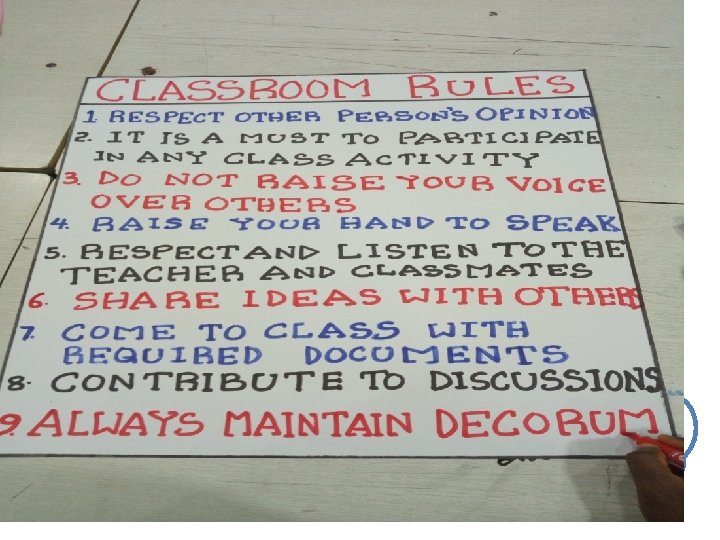 CLASSROOM RULES
1. RESPECT OTHER PERSON'S OPINION
2. IT IS A MUST TO PARTICIPATE
IN ANY CLASS ACTIVITY
3. DO NOT RAISE YOUR VOICE
OVER OTHERS
4. RAISE YOUR HAND TO SPEAK
5. RESPECT AND LISTEN TO THE
TEACHER AND CLASSMATES
6. SHARE IDEAS WITH OTHERS
7. COME TO CLASS WITH
REQUIRED DOCUMENTS
8. CONTRIBUTE TO DISCUSSIONS
9. ALWAYS MAINTAIN DECORUM